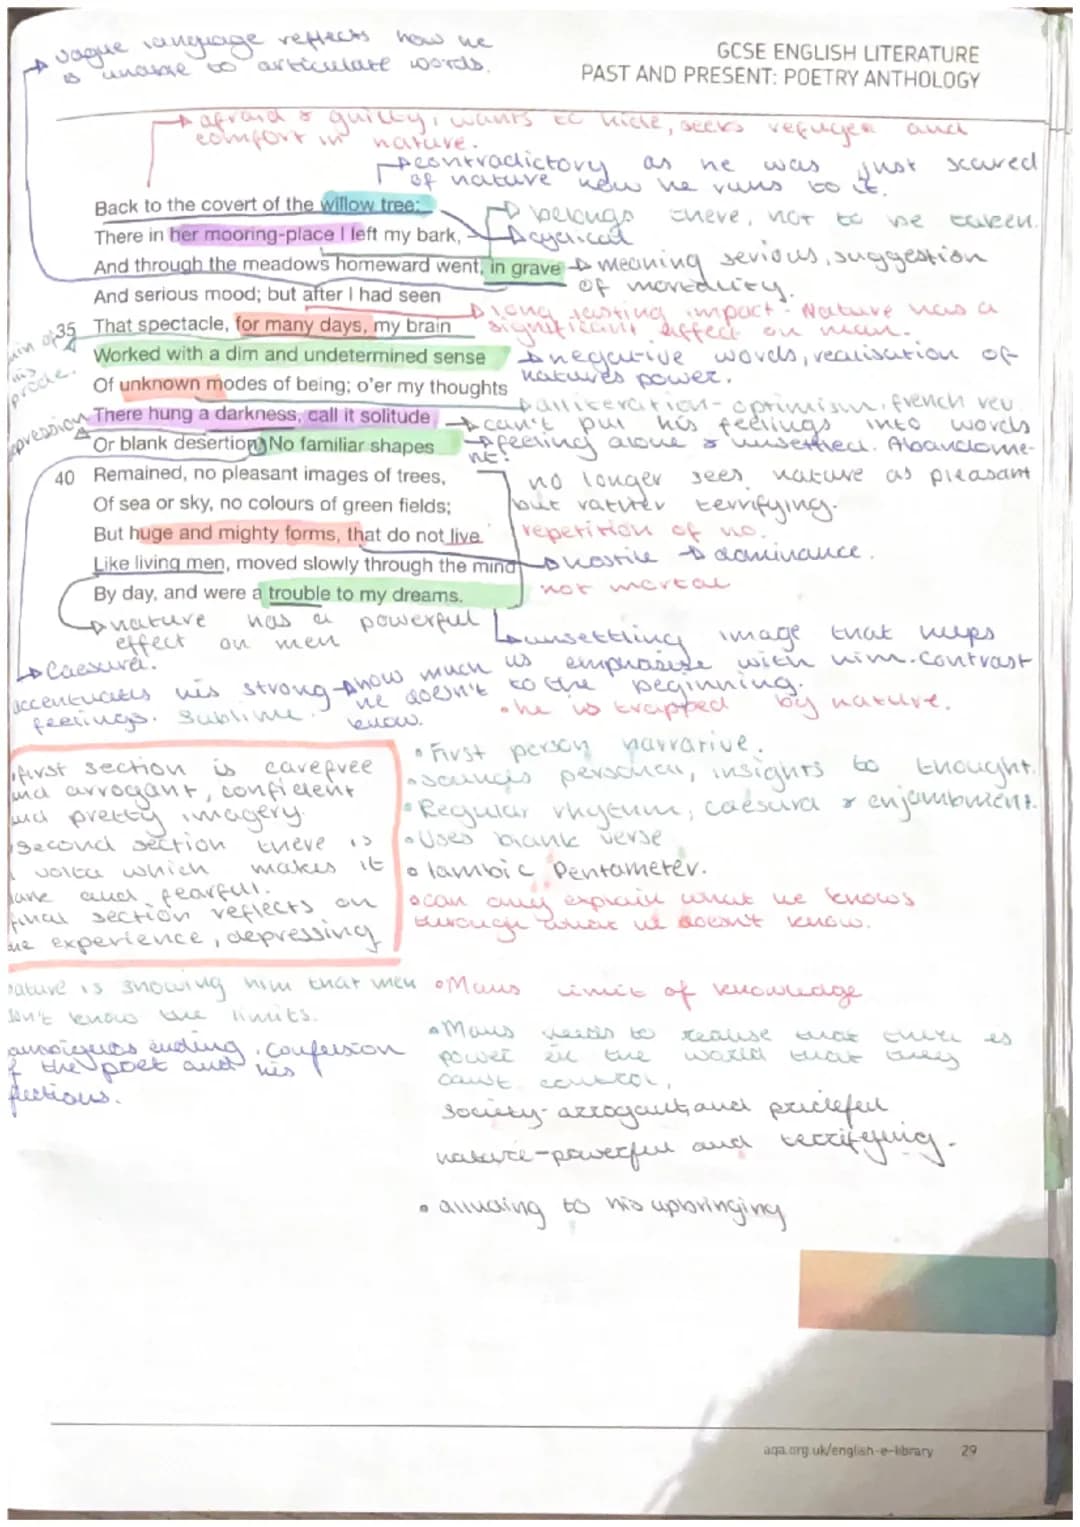 vague language reflects how he
is unable to articulate words.
GCSE ENGLISH LITERATURE
PAST AND PRESENT: POETRY ANTHOLOGY
afraid & guilty, wants to hide, seeks refugee and
comfort in nature.
contradictory as he was just scared
of nature now he runs to it.
Back to the covert of the willow tree;
belongs there, not to be taken.
There in her mooring-place I left my bark,
cyclical
And through the meadows homeward went, in grave
meaning serious, suggestion
of
And serious mood; but after I had seen
long lasting impact - Nature has a
significant effect on man.
35 That spectacle, for many days, my brain
of
his
pride.
Worked with a dim and undetermined sense
negative words, realisation of
natures power.
Of unknown modes of being; o'er my thoughts
alliteration - optimism, french rev
There hung a darkness, call it solitude
can't put his feelings into words
Or blank desertion. No familiar shapes
feeling alone & unsettled. Abandome-
nt?
40 Remained, no pleasant images of trees,
no longer sees nature as pleasant
Of sea or sky, no colours of green fields;
but rather terrifying.
But huge and mighty forms, that do not live
repetition of no.
Like living men, moved slowly through the mind
hostile dominance.
By day, and were a trouble to my dreams.
not mortal
nature has a powerful
effect on men
unsettling image that helps
us emphasise with him. Contrast
to the beginning.
Caesura.
accentuates his strong
feelings. Sublime.
how much
he doesn't
know.
• he is trapped by nature.
first section is carefree
and arrogant, confident
and pretty imagery.
second section there is
a volta which makes it
dark and fearful.
final section reflects on
the experience, depressing
• First person narrative.
• sounds personal, insights to thought.
• Regular rhythm, caesura & enjambment.
• Uses blank verse
• Iambic Pentameter.
• can only explain what we knows
through what we doesn't know.
nature is showing him that men
don't know the limits.
ambiguos ending. Confusion
of the poet and his
• Mans limit of knowledge
• Mans needs to realise that there is
power in the world that they
can't control.
society - arrogant and prideful
nature - powerful and terrifying.
• alluding to his upbringing
aqa.org.uk/english-e-library 29